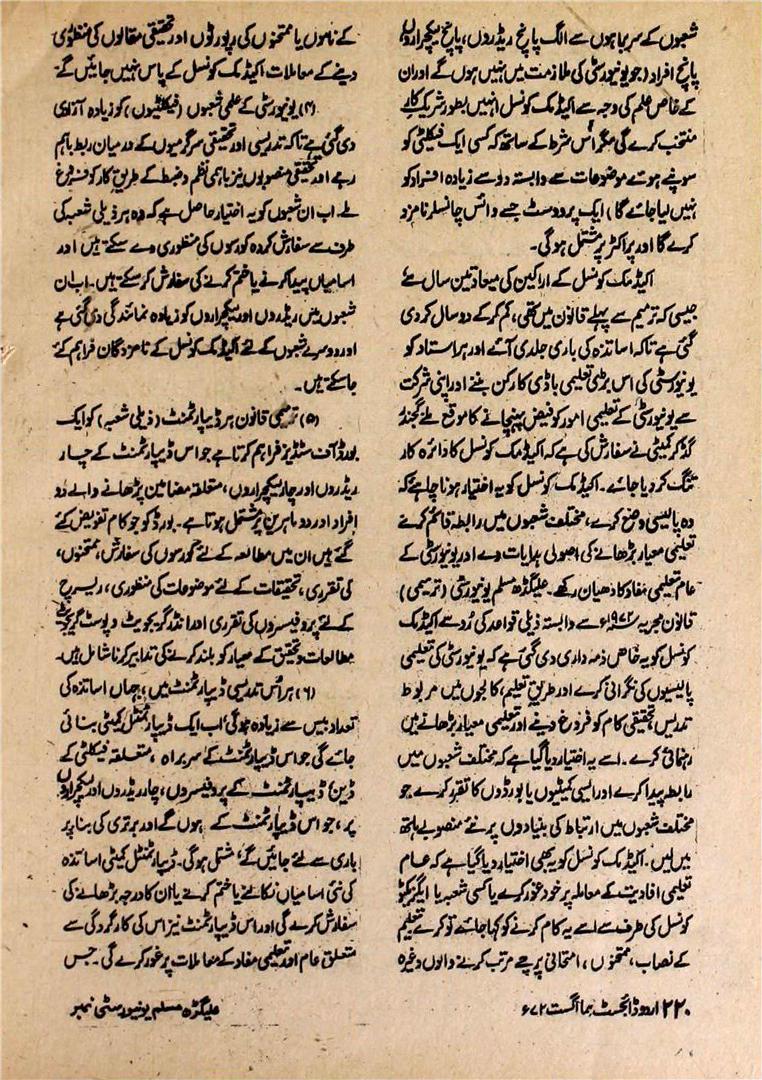 شعبوں کے سربراہوں سے الگ پانچ ریڈروں، پانچ لیکچراروں
پانچ افراد (جو یونیورسٹی کی ملازمت میں نہیں ہوں گے اور ان
کے خاص علم کی وجہ سے اکیڈمک کونسل انہیں بطور شریک کار
منتخب کرے گی مگر اس شرط کے ساتھ کہ کسی ایک فیکلٹی کو
سونپے ہوئے موضوعات سے وابستہ دو سے زیادہ افراد کو
نہیں لیا جائے گا) ایک پرووسٹ جسے وائس چانسلر نامزد
کرے گا اور پراکٹر پر مشتمل ہوگی۔
اکیڈمک کونسل کے اراکین کی میعاد تین سال سے
جیسی کہ ترمیم سے پہلے قانون میں تھی، کم کر کے دو سال کر دی
گئی ہے تاکہ اساتذہ کی باری جلدی آئے اور ہر استاد کو
یونیورسٹی کی اس بڑی تعلیمی باڈی کا رکن بننے اور اپنی شرکت
سے یونیورسٹی کے تعلیمی امور کو فیض پہنچانے کا موقع ملے گجندر
گڈکر کمیٹی نے سفارش کی ہے کہ اکیڈمک کونسل کا دائرہ کار
تنگ کر دیا جائے۔ اکیڈمک کونسل کو یہ اختیار ہونا چاہئے کہ
وہ پالیسی وضع کرے، مختلف شعبوں میں رابطہ قائم کرنے
تعلیمی معیار بڑھانے کی اصولی ہدایات دے اور یونیورسٹی کے
عام تعلیمی مفاد کا دھیان رکھے۔ علیگڑھ مسلم یونیورسٹی (ترمیمی)
قانون مجریہ ۱۹۷۲ء سے وابستہ ذیلی قواعد کی رو سے اکیڈمک
کونسل کو یہ خاص ذمہ داری دی گئی ہے کہ یونیورسٹی کی تعلیمی
پالیسیوں کی نگرانی کرے اور طریق تعلیم، کالجوں میں مربوط
تدریس تحقیقی کام کو فروغ دینے اور تعلیمی معیار بڑھانے میں
رہنمائی کرے۔ اسے یہ اختیار دیا گیا ہے کہ مختلف شعبوں میں
رابطہ پیدا کرے اور ایسی کمیٹیوں یا بورڈوں کا تقرر کرے جو
مختلف شعبوں میں ارتباط کی بنیادوں پر نئے منصوبے ہاتھ
میں لیں۔ اکیڈمک کونسل کو یہ بھی اختیار دیا گیا ہے کہ عام
تعلیمی افادیت کے معاملہ پر خود غور کرے یا کسی شعبہ یا ایگزیکٹو
کونسل کی طرف سے اسے یہ کام کرنے کو کہا جائے تو کرے تعلیم
کے نصاب، ممتحنوں، امتحانی پرچے مرتب کرنے والوں وغیرہ
کے ناموں یا ممتحنوں کی رپورٹوں اور تحقیقی مقالوں کی منظوری
دینے کے معاملات اکیڈمک کونسل کے پاس نہیں جائیں گے
(۴) یونیورسٹی کے علمی شعبوں (فیکلٹیوں) کو زیادہ آزادی
دی گئی ہے تاکہ تدریسی اور تحقیقی سرگرمیوں کے درمیان ربط باہم
رہے اور تحقیقی منصوبوں نیز باہمی نظم و ضبط کے طریق کار کو فروغ
ملے۔ اب ان شعبوں کو یہ اختیار حاصل ہے کہ وہ ہر ذیلی شعبہ کی
طرف سے سفارش کردہ کورسوں کی منظوری دے سکتے ہیں اور
اسامیاں پیدا کرنے یا ختم کرنے کی سفارش کر سکتے ہیں۔ اب ان
شعبوں میں ریڈروں اور لیکچراروں کو زیادہ نمائندگی دی گئی ہے
اور دوسرے شعبوں کے لئے اکیڈمک کونسل کے نامزدگان فراہم کئے
جا سکتے ہیں۔
(۵) ترمیمی قانون ہر ڈیپارٹمنٹ (ذیلی شعبہ) کو ایک
بورڈ آف سٹڈیز فراہم کرتا ہے جو اس ڈیپارٹمنٹ کے چار
ریڈروں اور چار لیکچراروں، متعلقہ مضامین پڑھانے والے دو
افراد اور دو ماہرین پر مشتمل ہوتا ہے۔ بورڈ کو جو کام تفویض کئے
گئے ہیں ان میں مطالعہ کے لئے کورسوں کی سفارش، ممتحنوں،
کی تقرری، تحقیقات کے لئے موضوعات کی منظوری، ریسرچ
کے لئے پروفیسروں کی تقرری اور انڈر گریجویٹ و پوسٹ گریجویٹ
مطالعات و تحقیق کے معیار کو بلند کرنے کی تدابیر کرنا شامل ہیں۔
(۶) ہر اس تدریسی ڈیپارٹمنٹ میں، جہاں اساتذہ کی
تعداد بیس سے زیادہ ہوگی اب ایک ڈیپارٹمنٹل کمیٹی بنائی
جائے گی جو اس ڈیپارٹمنٹ کے سربراہ، متعلقہ فیکلٹی کے
ڈین، ڈیپارٹمنٹ کے پروفیسروں، چار ریڈروں اور لیکچراروں
پر، جو اس ڈیپارٹمنٹ کے ہوں گے اور برتری کی بنا پر
باری سے لئے جائیں گے، مشتمل ہوگی۔ ڈیپارٹمنٹل کمیٹی اساتذہ
کی نئی اسامیاں نکالنے یا ختم کرنے یا ان کا درجہ بڑھانے کی
سفارش کرے گی اور اس ڈیپارٹمنٹ نیز اس کی کارگردگی سے
متعلق عام اور تعلیمی مفاد کے معاملات پر غور کرے گی۔ جس
۲۲۰ اردو ڈائجسٹ ہما اگست ۶۷۲
علیگڑھ مسلم یونیورسٹی نمبر